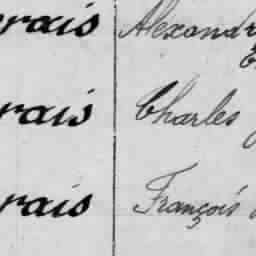 rais Alexandr
rais Charles
rais François